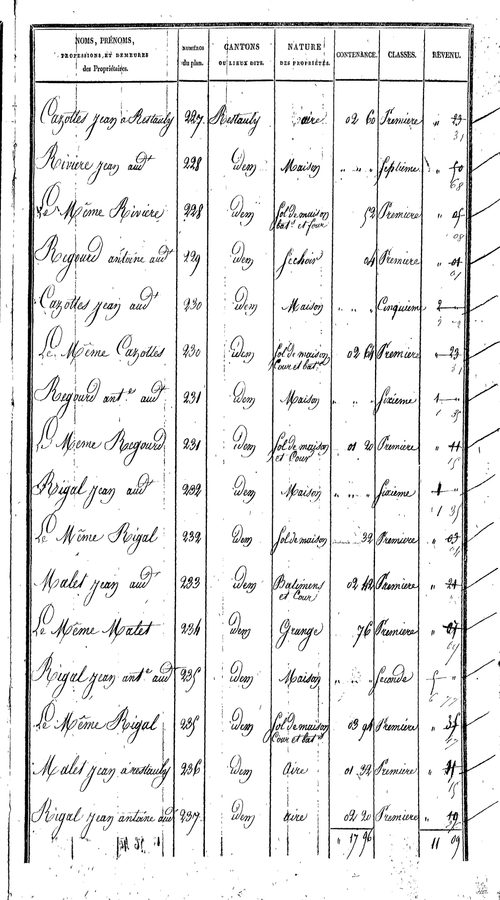 NOMS, PRÉNOMS, PROFESSIONS, ET DEMEURES des Propriétaires. NUMÉROS du plan. CANTONS OU LIEUX DITS. NATURE DES PROPRIÉTÉS. CONTENANCE. CLASSES. REVENU.
Cazottes jean à Restauly 227 Restauly aire 02 60 Premiere " 23
31
Riviere jean audt 228 idem Maison " " " Septieme " 50
68
Le Même Riviere 228 idem Sol de maison batt et four 52 Premiere " 05
08
Regourd antoine audt 129 idem Sechoir 04 Premiere " 01
01
Cazottes jean audt 230 idem Maison " " " Cinquieme 2
3
Le Même Cazottes 230 idem Sol de maison Cour et batt 02 64 Premiere " 23
31
Regourd ante audt 231 idem Maison " " " Sixieme 1 "
1 35
Le Même Regourd 231 idem Sol de maison et Cour 01 20 Premiere " 11
15
Rigal jean audt 232 idem Maison " " " Sixieme 1 "
1 35
Le Même Rigal 232 idem Sol de maison 32 Premiere " 03
04
Malet jean audt 233 idem Batimens et Cour 02 42 Premiere " 21
Le Même Malet 234 idem Grange 76 Premiere " 07
Rigal jean ante audt 235 idem Maison " " " Seconde 5 "
6 77
Le Même Rigal 235 idem Sol de maison Cour et batt 03 94 Premiere " 35
Malet jean à restauly 236 idem Aire 01 32 Premiere " 11
15
Rigal jean antoine audt 237 idem aire 02 20 Premiere " 19
" 17 96 11 09